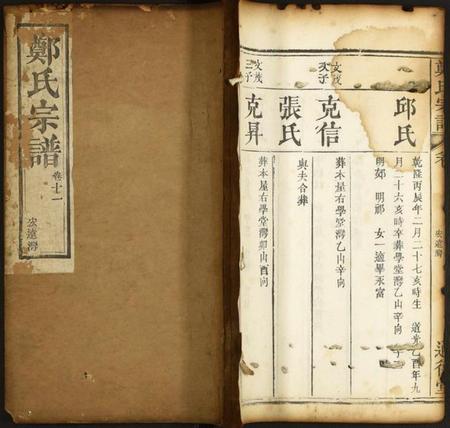 鄭氏宗譜
卷十一
宏遠灣
鄭氏宗譜
卷
宏遠灣
邱氏
乾隆丙辰年二月二十七亥時生 道光乙酉年九
月二十六亥時卒葬學堂灣乙山辛向 子二
明郊 明祁 女一適畢永富
文茂
次子
克信
葬本屋右學堂灣乙山辛向
張氏
與夫合葬
文茂
三子
克昇
葬本屋右學堂灣卯山酉向